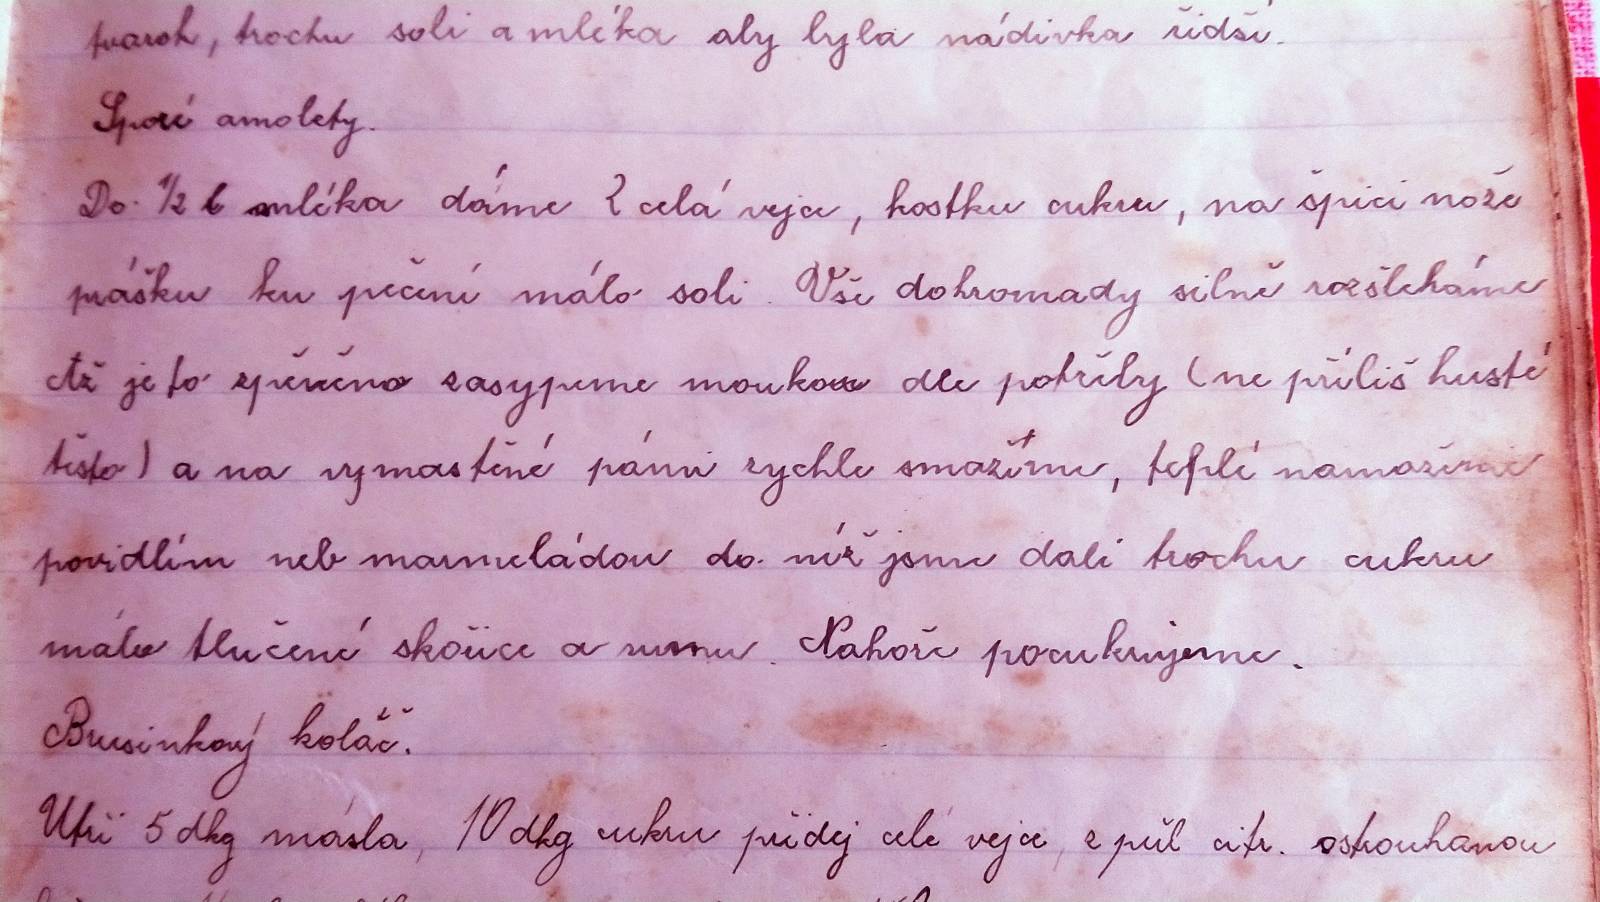 tvaroh, trochu soli a mléka aby byla nádivka řidší.
Sporé amolety.
Do ½ l mléka dáme 2 celá vejce, kostku cukru, na špici nože
prášku ku pečení málo soli. Vše dohromady silně rozšleháme
Až je to zpěněno zasypeme moukou dle potřeby (ne příliš husté
těsto) a na vymastěné pánvi rychle smažíme, teplé namažeme
povidlím neb marmeládou do níž jsme dali trochu cukru
málo tlučené skořice a rumu. Nahoře pocukrujeme.
Businkový koláč.
Utři 5 dkg másla, 10 dkg cukru přidej celé vejce, z půl citr. ostrouhanou